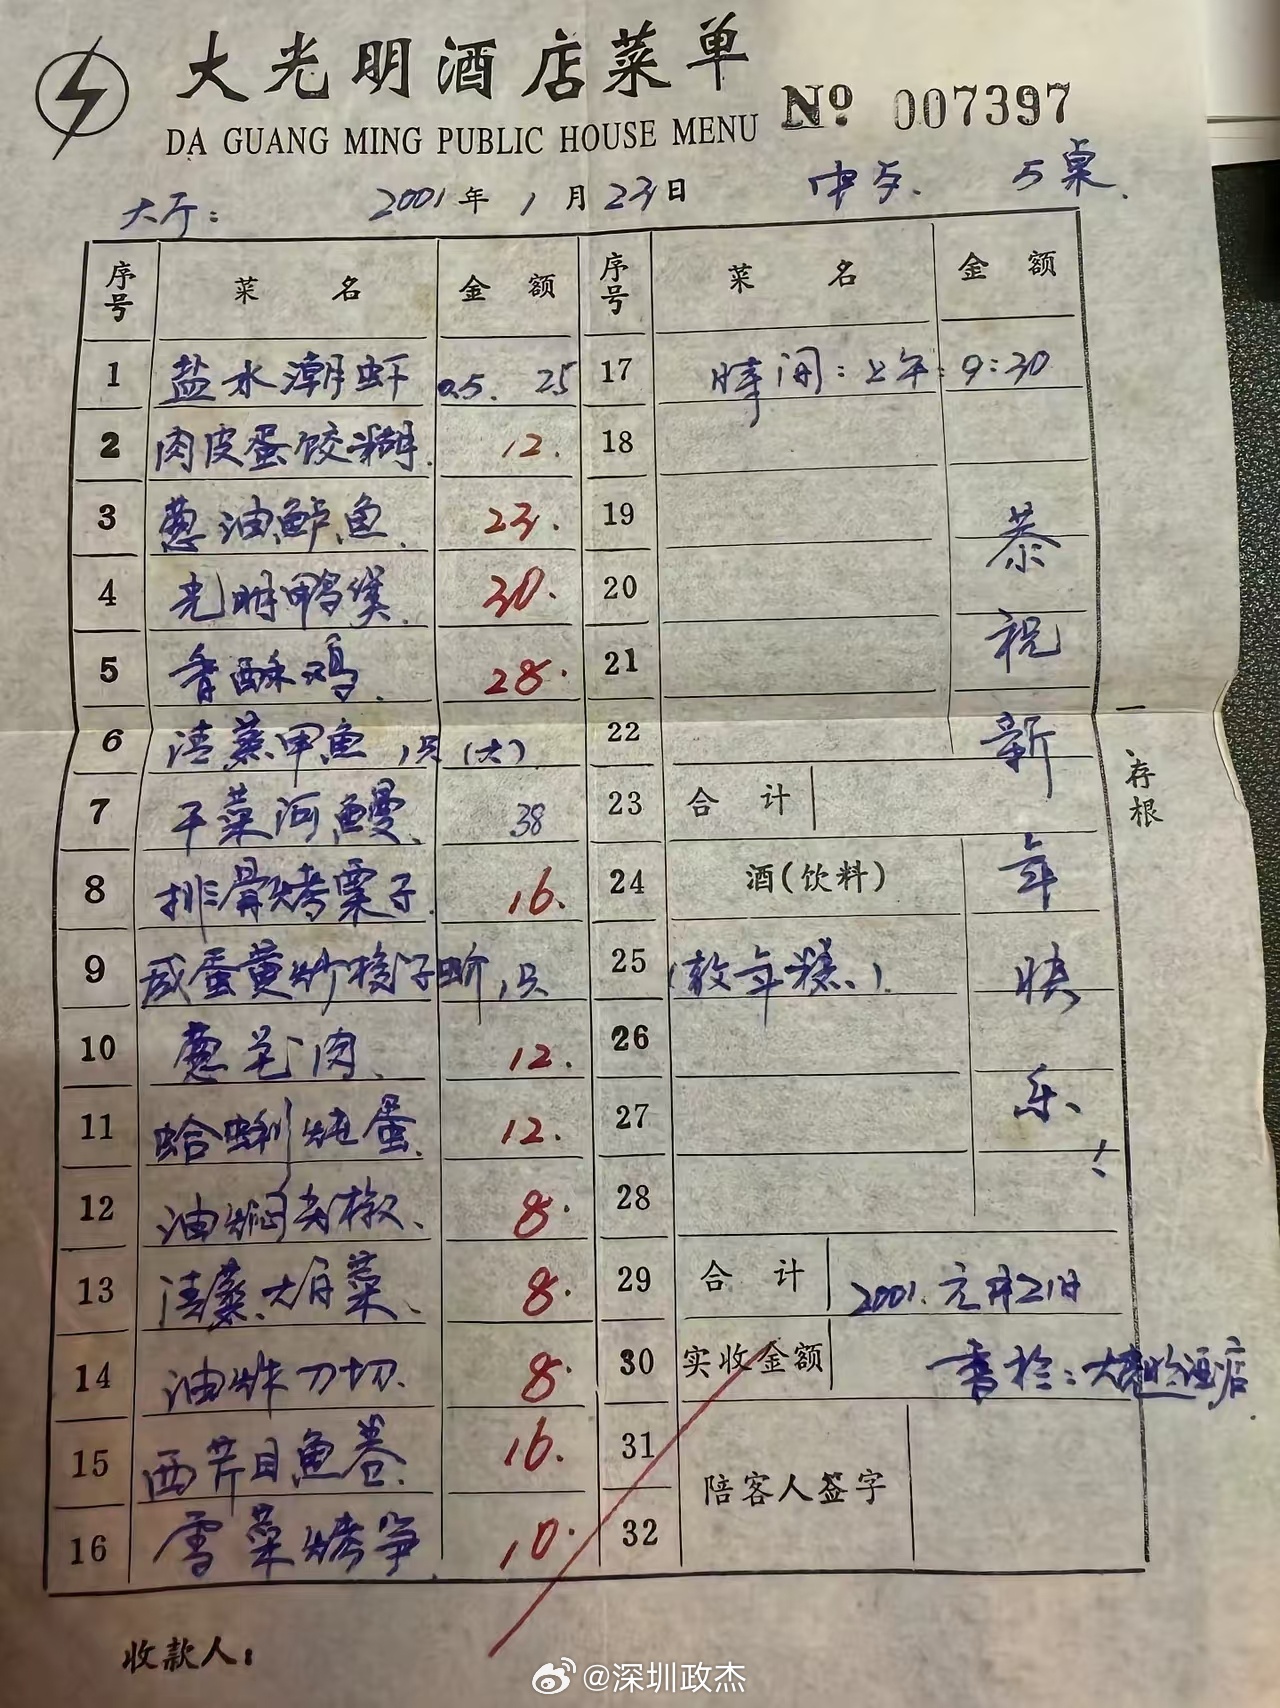 大光明酒店菜单
DA GUANG MING PUBLIC HOUSE MENU
Nº 007397
大厅: 2001年1月23日 中 5桌.
序号 菜名 金额 序号 菜名 金额
1 盐水潮虾 0.5. 25 17 時间:上午:9:30
2 肉皮蛋饺糊. 12. 18
3 葱油鲈鱼. 23. 19
4 光明鸭煲. 30. 20
5 香酥鸡. 28. 21
6 清蒸甲鱼 1只(大) 22
7 干菜河鳗. 38 23 合计
8 排骨烤粟子. 16. 24 酒(饮料)
9 咸蛋黄炒梭子蚧 1只 25 (敖年糕.)
10 葱毛肉. 12. 26
11 蛤蜊炖蛋. 12. 27
12 油焖尖椒、 8. 28
13 清蒸大白菜、 8. 29 合计 2001.元月21日
14 油炸刀切. 8. 30 实收金额 书於:大光明酒店.
15 西芹目鱼卷. 16. 31 陪客人签字
16 雪菜烤笋 10. 32
恭祝新年快乐!
一存根
收款人:
@深圳政杰